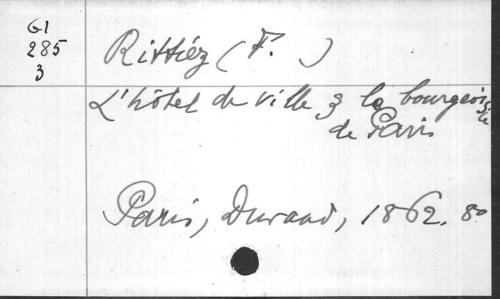 G1
285
3
Rittiéz (F. )
L'hôtel de ville & la bourgeoisie
de Paris
Paris, Durand, 1862. 8º